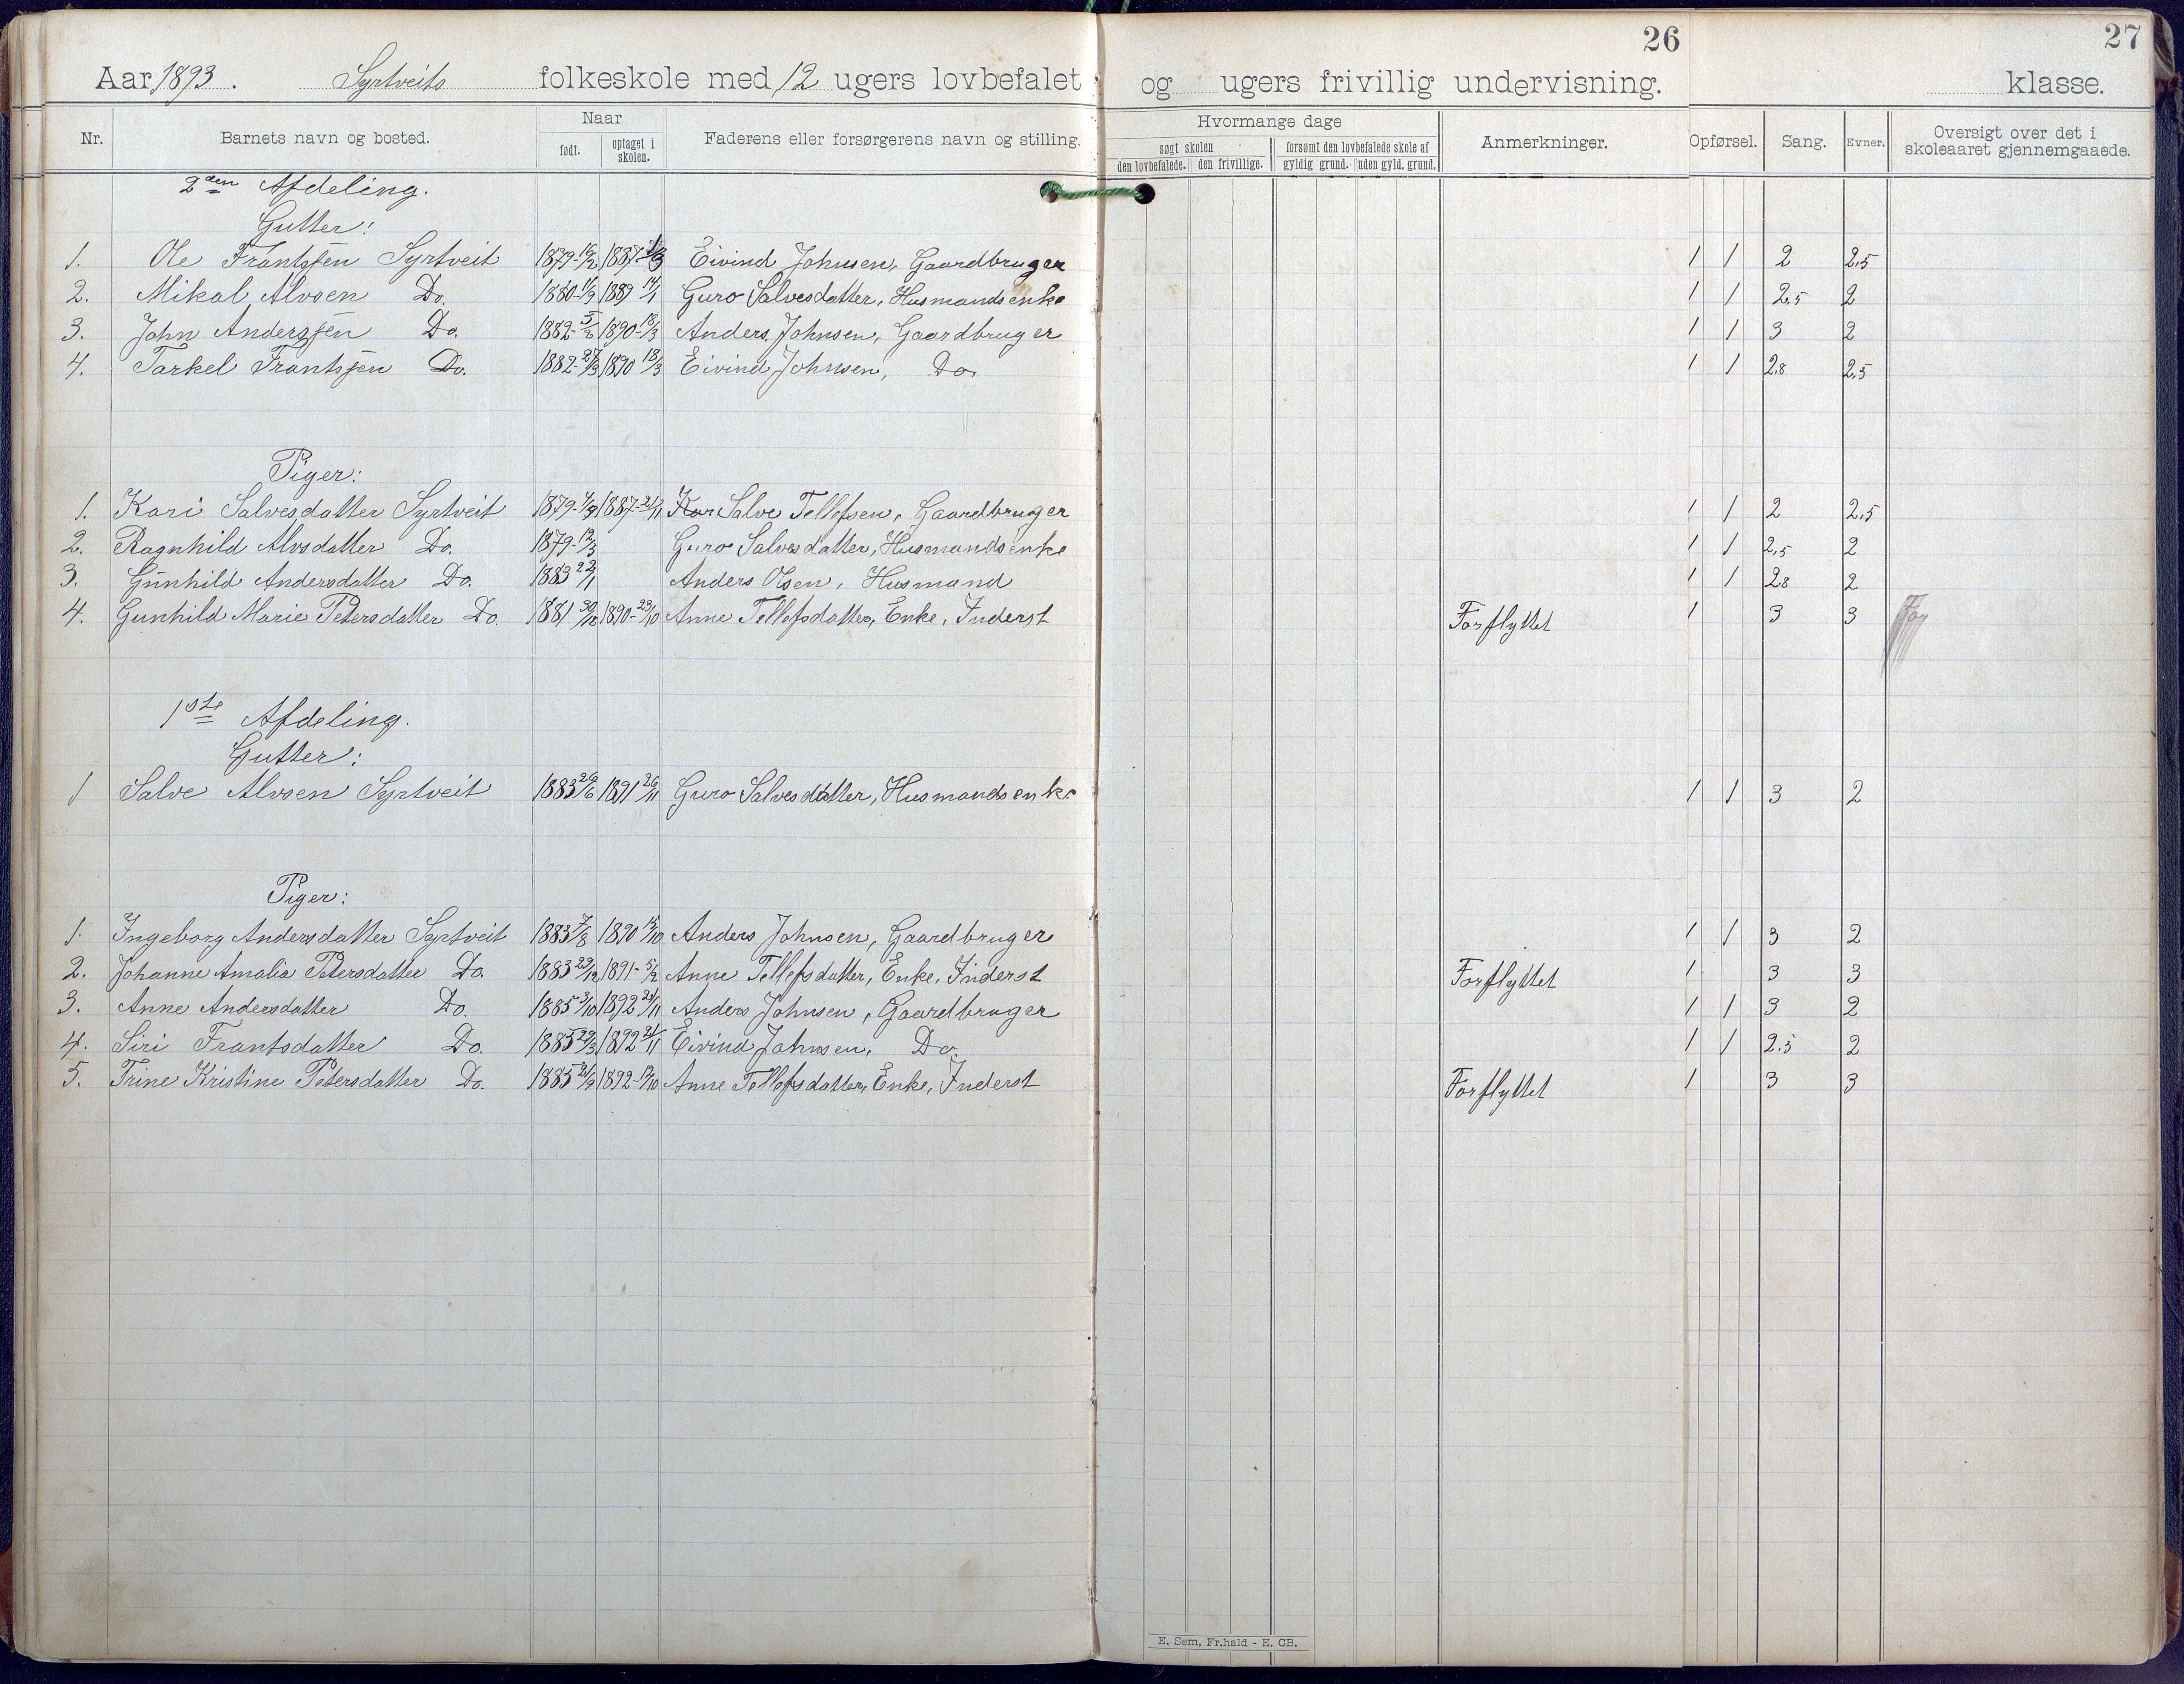 26
27
Aar 1893. Syrtveits folkeskole med 12 ugers lovbefalet og ugers frivillig undervisning. klasse.
Nr. Barnets navn og bosted. Naar født. optaget i skolen. Faderens eller forsørgerens navn og stilling. Hvormange dage søgt skolen den lovbefalede. den frivillige. forsømt den lovbefalede skole af gyldig grund. uden gyld. grund. Anmerkninger. Opførsel. Sang. Evner. Oversigt over det i skoleaaret gjennemgaaede.
2den Afdeling.
Gutter:
1. Ole Frantssen Syrtveit 1879-16/2 1887 1/3 Eivind Johnsen, Gaardbruger 1 1 2 2,5
2. Mikal Alvsen Do. 1880-11/9 1889 14/1 Guro Salvesdatter, Husmandsenke 1 1 2,5 2
3. John Anderssen Do. 1882-5/2 1890-18/3 Anders Johnsen, Gaardbruger 1 1 3 2
4. Tarkel Frantssen Do. 1882-27/3 1890 18/3 Eivind Johnsen, Do. 1 1 2,8 2,5
Piger:
1. Kari Salvesdatter Syrtveit 1879-7/9 1887-21/11 Salve Tellefsen, Gaardbruger 1 1 2 2,5
2. Ragnhild Alvsdatter Do. 1879-12/3 Guro Salvesdatter, Husmandsenke 1 1 2,5 2
3. Gunhild Andersdatter Do. 1883 22/1 Anders Olsen, Husmand 1 1 2,8 2
4. Gunhild Marie Petersdatter Do. 1881 30/12 1890-23/10 Anne Tellefsdatter, Enke, Inderst Forflyttet 1 3 3 For
1ste Afdeling.
Gutter:
1 Salve Alvsen Syrtveit 1883 26/6 1891 26/11 Guro Salvesdatter, Husmandsenke 1 1 3 2
Piger:
1. Ingeborg Andersdatter Syrtveit 1883 7/8 1890 15/10 Anders Johnsen, Gaardbruger 1 1 3 2
2. Johanne Amalia Petersdatter Do. 1883 29/12 1891-5/2 Anne Tellefsdatter, Enke, Inderst Forflyttet 1 3 3
3. Anne Andersdatter Do. 1885 3/10 1892 21/11 Anders Johnsen, Gaardbruger 1 1 3 2
4. Siri Frantsdatter Do. 1885 29/3 1892 21/11 Eivind Johnsen, Do. 1 1 2,5 2
5. Trine Kristine Petersdatter Do. 1885 21/9 1892-17/10 Anne Tellefsdatter, Enke, Inderst Forflyttet 1 3 3
E. Sem, Fr.hald - E. CB.